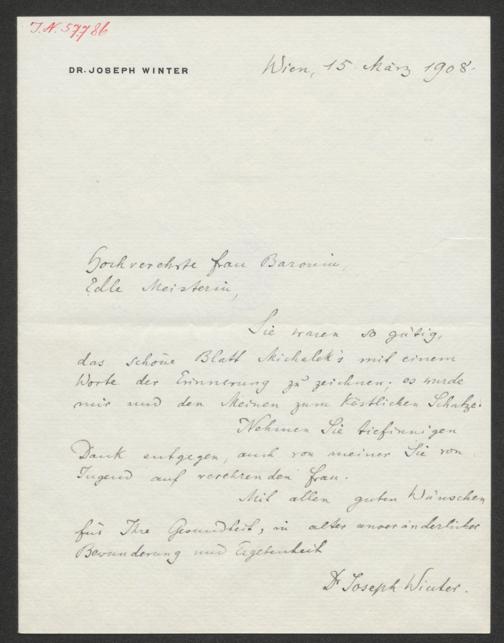 J.N. 57786
DR. JOSEPH WINTER
Wien, 15 März 1908.
Hochverehrte Frau Baronin,
Edle Meisterin,
Sie waren so gütig,
das schöne Blatt Michalek's mit einem
Worte der Erinnerung zu zeichnen; es wurde
mir und den Meinen zum köstlichen Schatze.
Nehmen Sie tiefinnigen
Dank entgegen, auch von meiner Sie von
Jugend auf verehrenden Frau.
Mit allen guten Wünschen
für Ihre Gesundheit, in alter unveränderlicher
Bewunderung und Ergebenheit
Dr Joseph Winter.